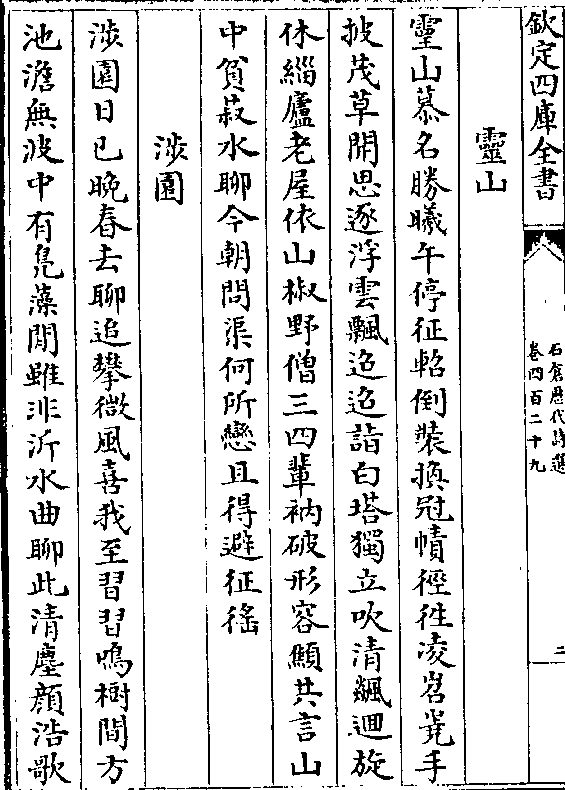 欽定四庫全書
石倉歷代詩選
卷四百二十九
二
靈山
靈山慕名勝曦午停征軺倒裝換冠幘徑徃凌岧嶤手
披茂草開思逐浮雲飄迢迢詣白塔獨立吹清飈迴旋
休緇廬老屋依山椒野僧三四輩衲破形容顦共言山
中貧菽水聊今朝問渠何所戀且得避征徭
涉園
涉園日已晚春去聊追攀微風喜我至習習鳴樹間方
池澹無波中有鳧藻閒雖非沂水曲聊此清塵顔浩歌